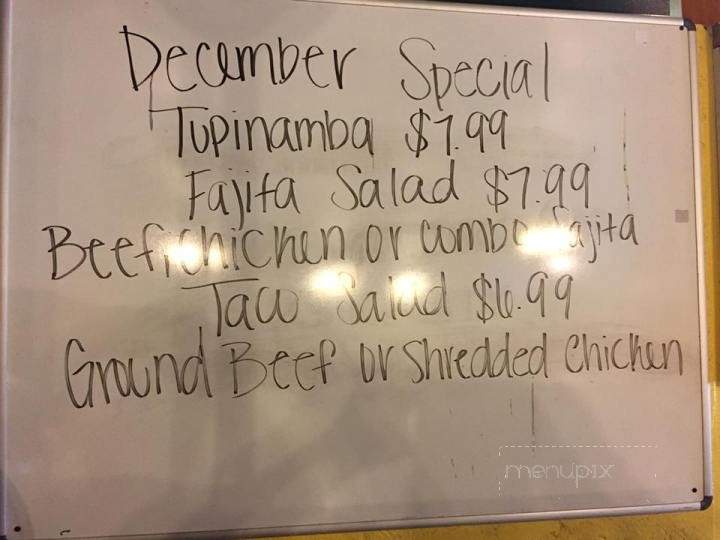 December Special
Tupinamba $7.99
Fajita Salad $7.99
Beef, chicken or combo fajita
Taco Salad $6.99
Ground Beef or Shredded Chicken
menupix